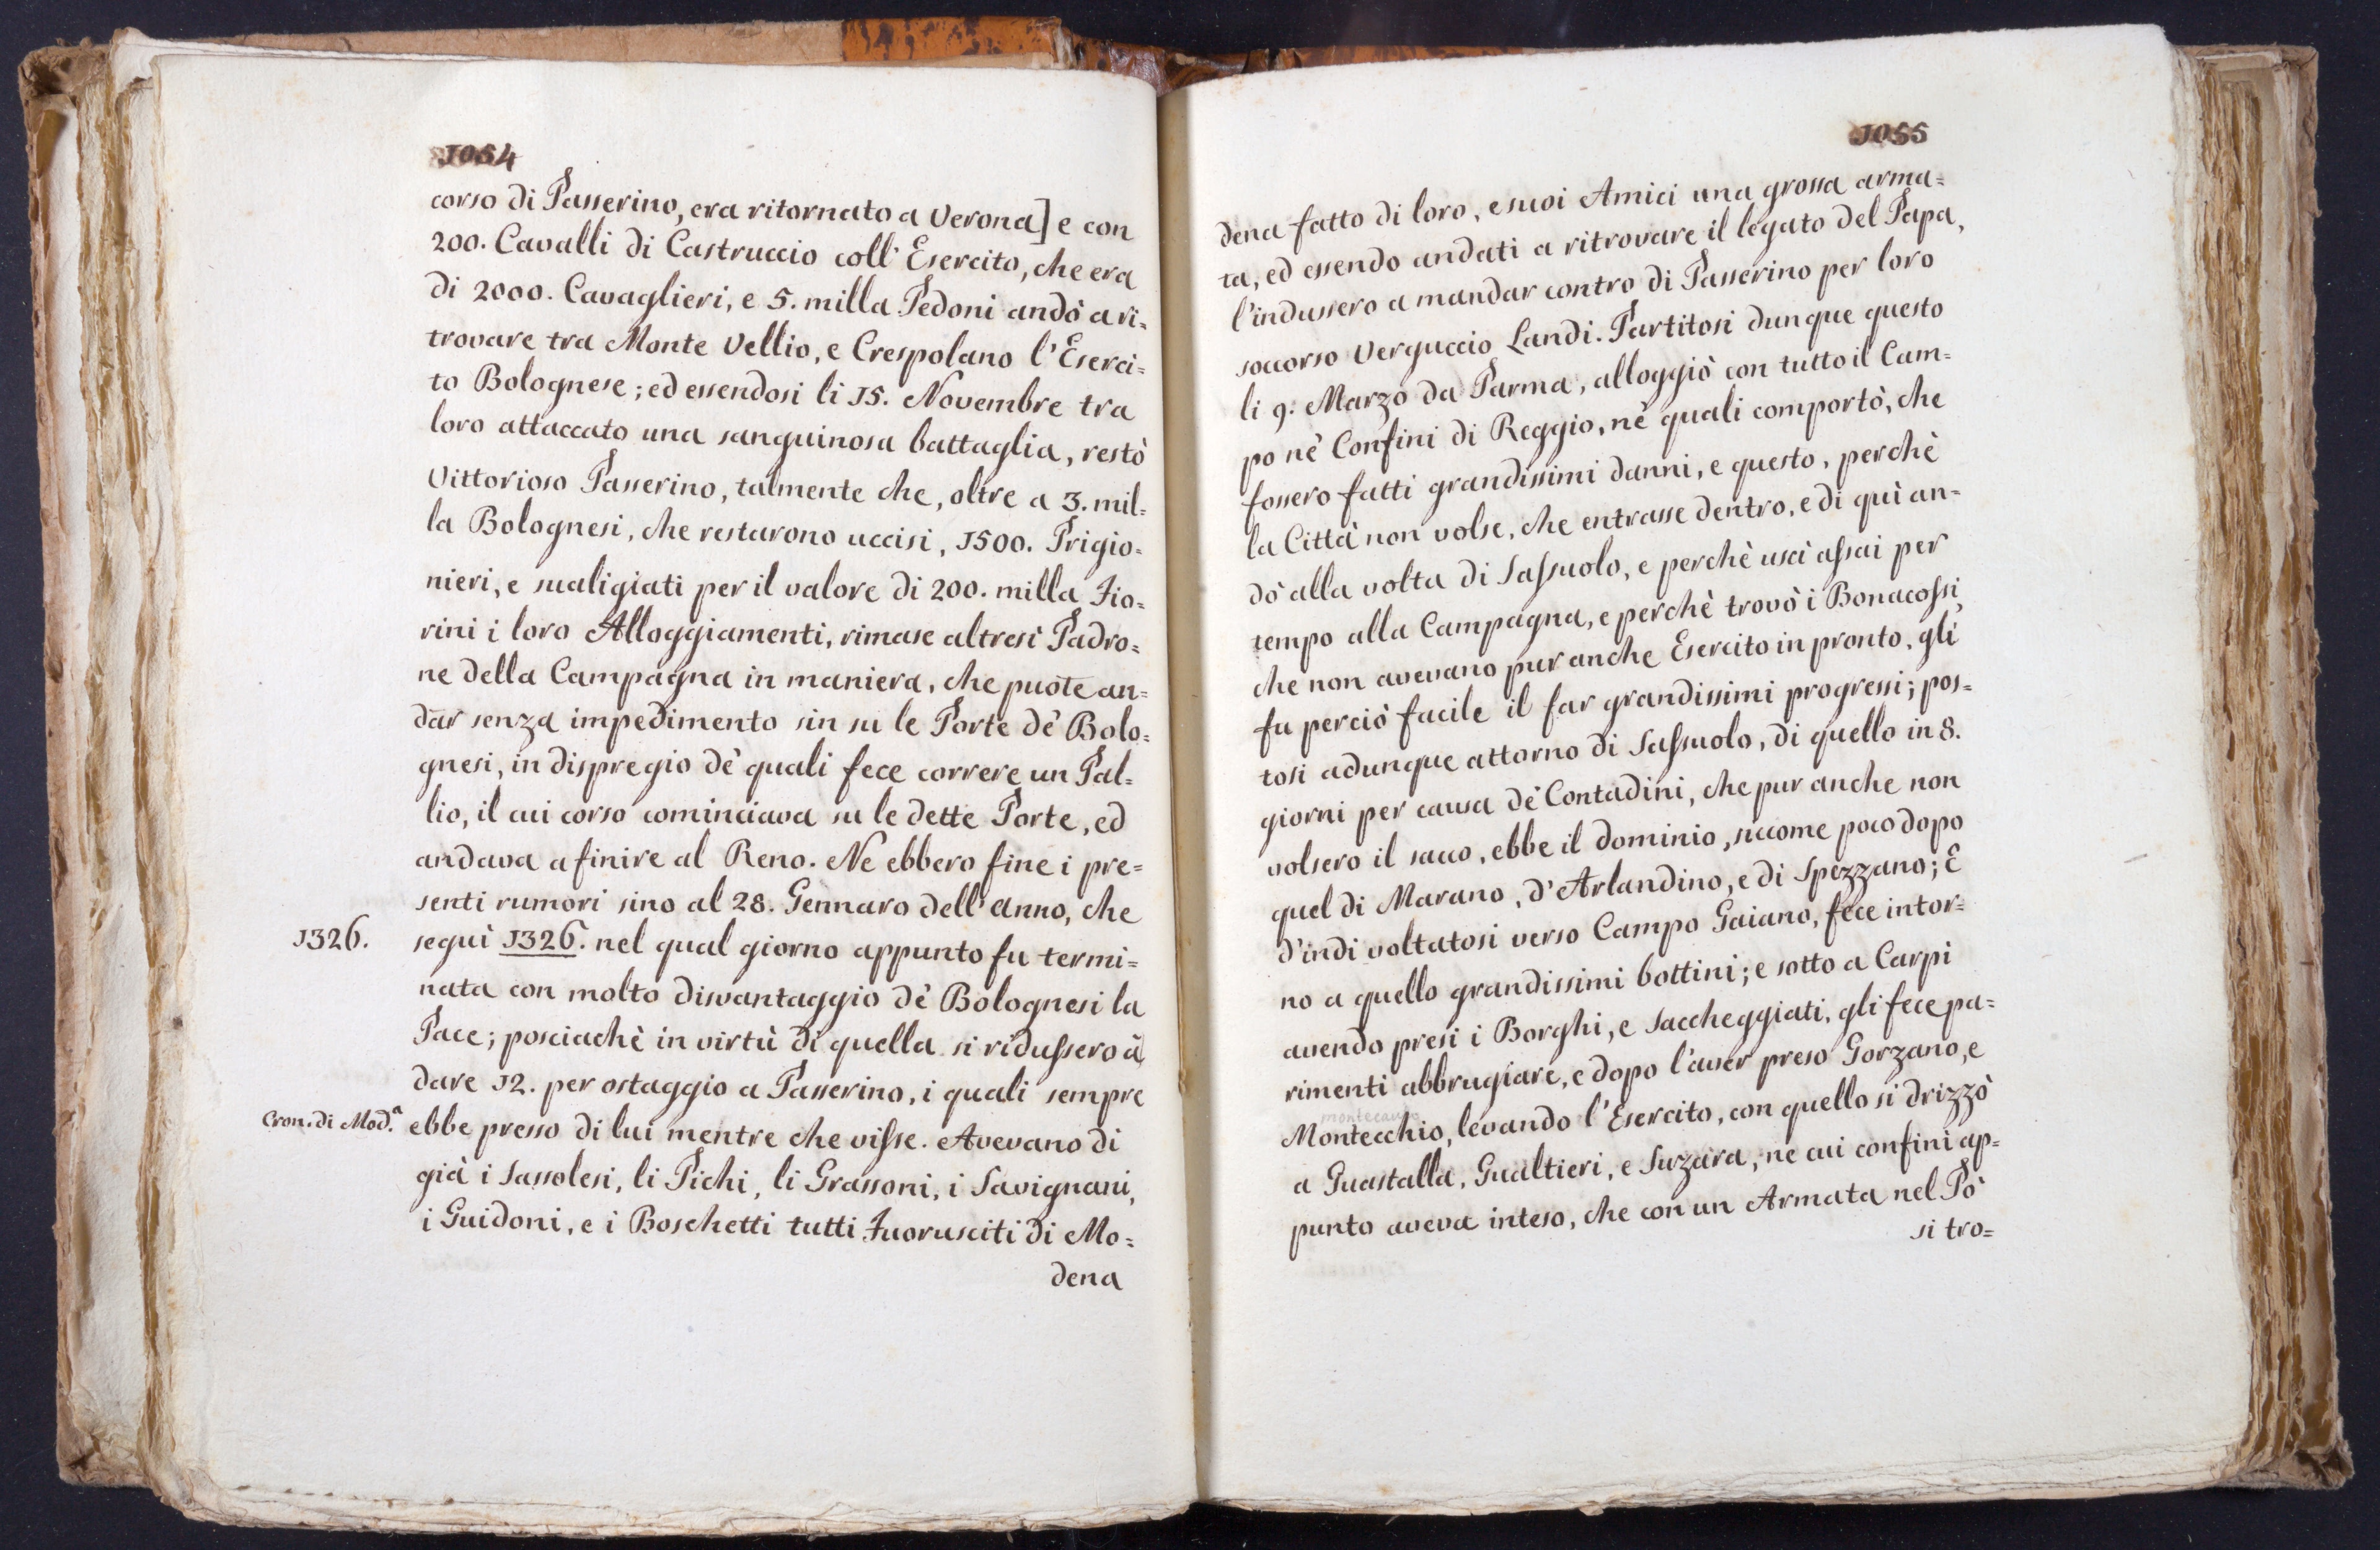 1054
corso di Passerino, era ritornato a Verona] e con
200. Cavalli di Castruccio coll' Esercito, che era
di 2000. Cavaglieri, e 5. milla Pedoni andò a ri=
trovare tra Monte Vellio, e Crespolano l'Eserci=
to Bolognese; ed essendosi li 15. Novembre tra
loro attaccato una sanguinosa battaglia, restò
Vittorioso Passerino, talmente che, oltre a 3. mil=
la Bolognesi, che restarono uccisi, 1500. Prigio=
nieri, e svaligiati per il valore di 200. milla Fio=
rini i loro Alloggiamenti, rimase altresì Padro=
ne della Campagna in maniera, che puote an=
dar senza impedimento sin su le Porte dè Bolo=
gnesi, in dispregio dè quali fece correre un Pal=
lio, il cui corso cominciava su le dette Porte, ed
andava a finire al Reno. Ne ebbero fine i pre=
senti rumori sino al 28. Gennaro dell'anno, che
1326. seguì 1326. nel qual giorno appunto fu termi=
nata con molto disvantaggio dè Bolognesi la
Pace; posciachè in virtù di quella si ridussero à
dare 12. per ostaggio a Passerino, i quali sempre
Cron. di Mod.ª ebbe presso di lui mentre che visse. Avevano di
già i Sassolesi, li Pichi, li Grassoni, i Savignani,
i Guidoni, e i Boschetti tutti Fuorusciti di Mo=
dena
1055
dena fatto di loro, e suoi Amici una grossa arma=
ta, ed essendo andati a ritrovare il legato del Papa,
l'indussero a mandar contro di Passerino per loro
soccorso Verguccio Landi. Partitosi dunque questo
li 9. Marzo da Parma, alloggiò con tutto il Cam=
po nè Confini di Reggio, nè quali comportò, che
fossero fatti grandissimi danni, e questo, perchè
la Città non volse, che entrasse dentro, e di quì an=
dò alla volta di Sassuolo, e perchè uscì assai per
tempo alla Campagna, e perchè trovò i Bonacossi,
che non avevano pur anche Esercito in pronto, gli
fu perciò facile il far grandissimi progressi; pos=
tosi adunque attorno di Sassuolo, di quello in 8.
giorni per causa dè Contadini, che pur anche non
volsero il sacco, ebbe il dominio, siccome poco dopo
quel di Marano, d'Arlandino, e di Spezzano; E
d'indi voltatosi verso Campo Gaiano, fece intor=
no a quello grandissimi bottini; e sotto a Carpi
avendo presi i Borghi, e saccheggiati, gli fece pa=
rimenti abbrugiare, e dopo l'aver preso Gorzano, e
Montecchio, levando l'Esercito, con quello si drizzò
a Guastalla, Gualtieri, e Suzara, ne cui confini ap=
punto aveva inteso, che con un Armata nel Pò
si tro=